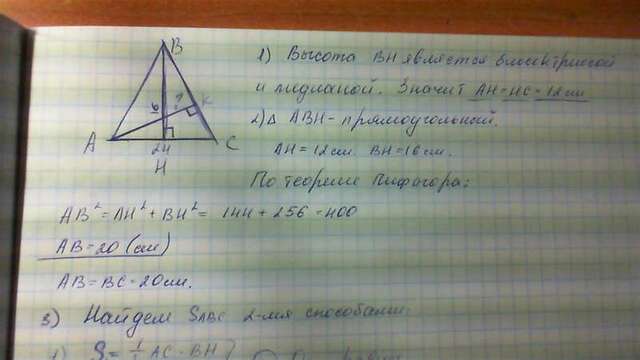 B
6
?
K
A
C
24
H
1) Высота BH является биссектрисой
и медианой. Значит AH=HC=12см
2) Δ ABH - прямоугольный.
AH=12см. BH=16см.
По теореме Пифагора:
AB²=AH²+BH²= 144+256=400
AB=20 (см)
AB=BC=20см.
3) Найдем SABC 2-мя способами:
1) S= AC·BH